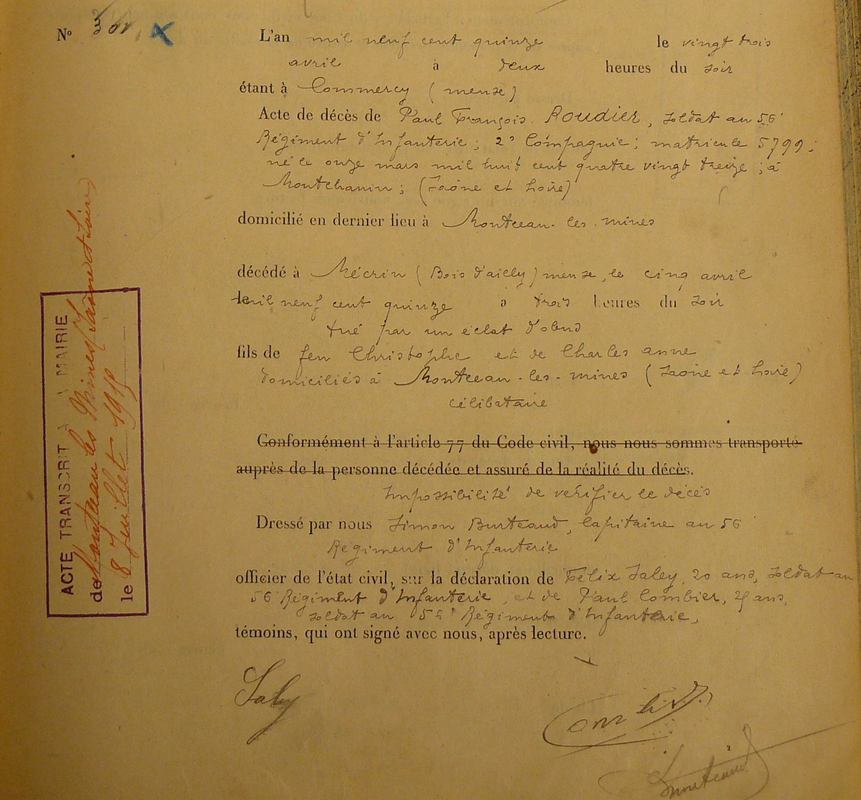 N° 501
L'an mil neuf cent quinze le vingt trois
avril à deux heures du soir
étant à Commercy (meuse)
Acte de décès de Paul François Roudier, soldat au 56
Régiment d'Infanterie; 2° Compagnie; matricule 5799;
né le onze mars mil huit cent quatre vingt treize; à
Montchanin; (Saône et Loire)
domicilié en dernier lieu à Montceau-les-mines
décédé à Mécrin (Bois d'ailly) meuse, le cinq avril
mil neuf cent quinze à trois heures du soir
tué par un éclat d'obus
fils de feu Christophe et de Charles anne
domiciliés à Montceau-les-mines (Saône et Loire)
célibataire
Conformément à l'article 77 du Code civil, nous nous sommes transporté
auprès de la personne décédée et assuré de la réalité du décès.
Impossibilité de vérifier le décès
Dressé par nous Simon Burteaud, Capitaine au 56
Régiment d'Infanterie
officier de l'état civil, sur la déclaration de Félix Saley, 20 ans, soldat au
56 Régiment d'Infanterie, et de Paul Combier, ans,
soldat au 56° Régiment d'Infanterie,
témoins, qui ont signé avec nous, après lecture.
Saley
Combier
Burteaud
ACTE TRANSCRIT À MAIRIE
de Montceau les Mines (Saône et Loire)
le 8 Juillet 1915